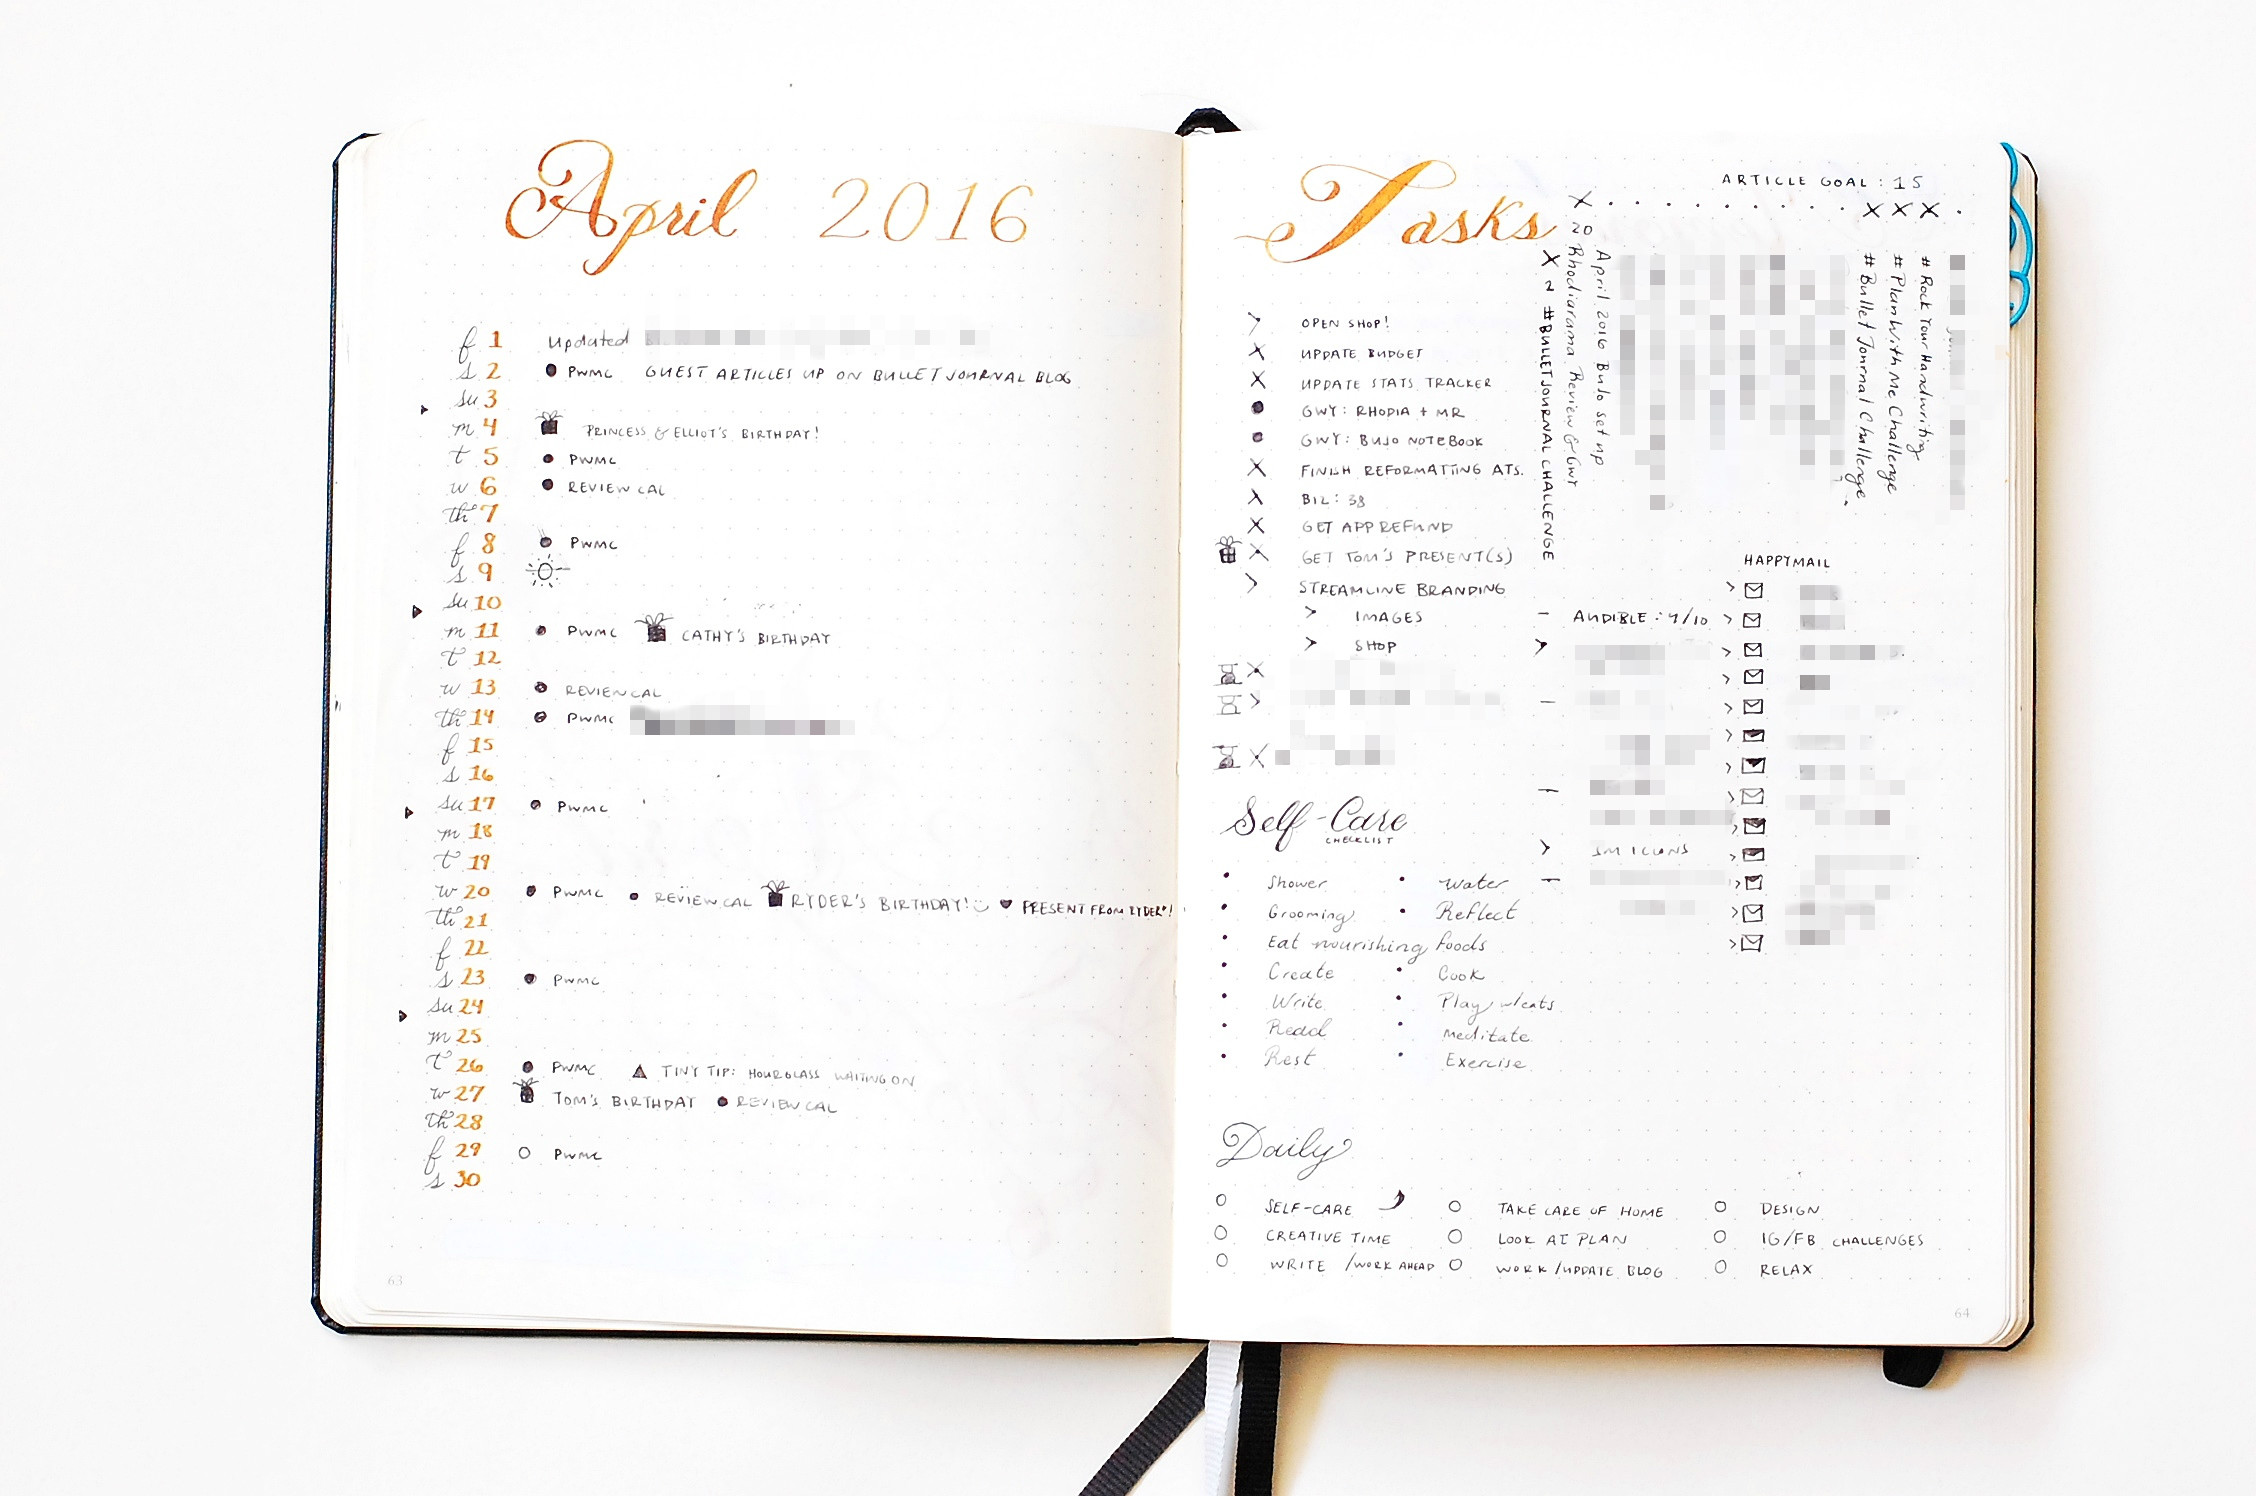 April 2016
f 1 Updated
s 2 PWMC GUEST ARTICLES UP ON BULLET JOURNAL BLOG
su 3
m 4 PRINCESS & ELLIOT'S BIRTHDAY!
t 5 PWMC
w 6 REVIEW CAL
th 7
f 8 PWMC
s 9
su 10
m 11 PWMC CATHY'S BIRTHDAY
t 12
w 13 REVIEW CAL
th 14 PWMC
f 15
s 16
su 17 PWMC
m 18
t 19
w 20 PWMC REVIEW CAL RYDER'S BIRTHDAY! PRESENT FROM RYDER!
th 21
f 22
s 23 PWMC
su 24
m 25
t 26 PWMC TINY TIP: HOURGLASS WAITING ON
w 27 TOM'S BIRTHDAY REVIEW CAL
th 28
f 29 PWMC
s 30
63
Tasks
ARTICLE GOAL: 15
X X X X
OPEN SHOP!
X UPDATE BUDGET
X UPDATE STATS TRACKER
GWY: RHODIA + MR
GWY: BUJO NOTEBOOK
X FINISH REFORMATTING ATS.
X BIZ: 38
X GET APP REFUND
X GET TOM'S PRESENT(S)
> STREAMLINE BRANDING
> IMAGES
> SHOP
X 2 #BULLETJOURNALCHALLENGE
20 Rhodiarama Review & GWY
April 2016 BuJo set up
#Bullet Jornal Challenge
#PlanWithMeChallenge
#RockYourHandwriting
- AUDIBLE: 4/10
> SM ICONS
HAPPYMAIL
Self-Care
CHECKLIST
Shower • Water
Grooming • Reflect
Eat nourishing foods
Create • Cook
Write • Play w/cats
Read • Meditate
Rest • Exercise
Daily
SELF-CARE TAKE CARE OF HOME DESIGN
CREATIVE TIME LOOK AT PLAN IG/FB CHALLENGES
WRITE /WORK AHEAD WORK/UPDATE BLOG RELAX
64